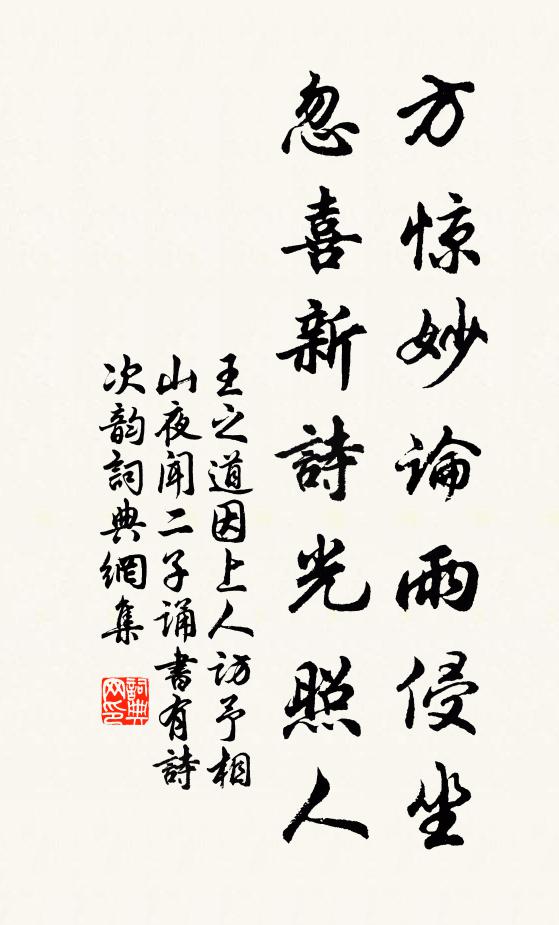 方惊妙論雨侵坐
忽喜新詩光照人
王之道因上人訪予相
山夜闻二子诵書有詩
次韵詞典網集
詞典
网印